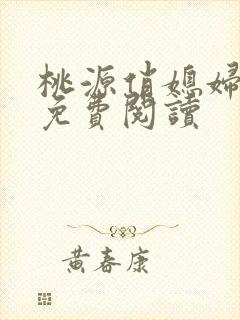 桃源俏媳婦
免費閱讀
黃春康